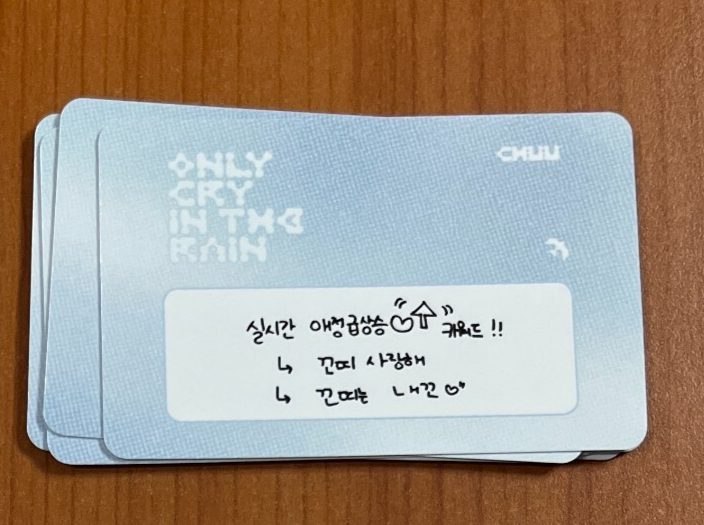 ONLY
CRY
IN THE
RAIN
CHUU
실시간 애정급상승 키워드 !!
↳ 꼰띠 사랑해
↳ 꼰띠는 내꼰